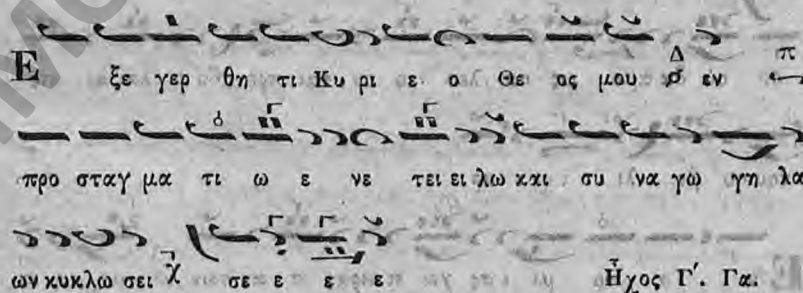 Ε ξε γερ θη τι Κυ ρι ε ο Θε ος μου Δ εν π
προ σταγ μα τι ω ε νε τει ει λω και συ να γω γη λα
ων κυκλω σει χ σε ε ε ε Ἦχος Γ΄. Γα.